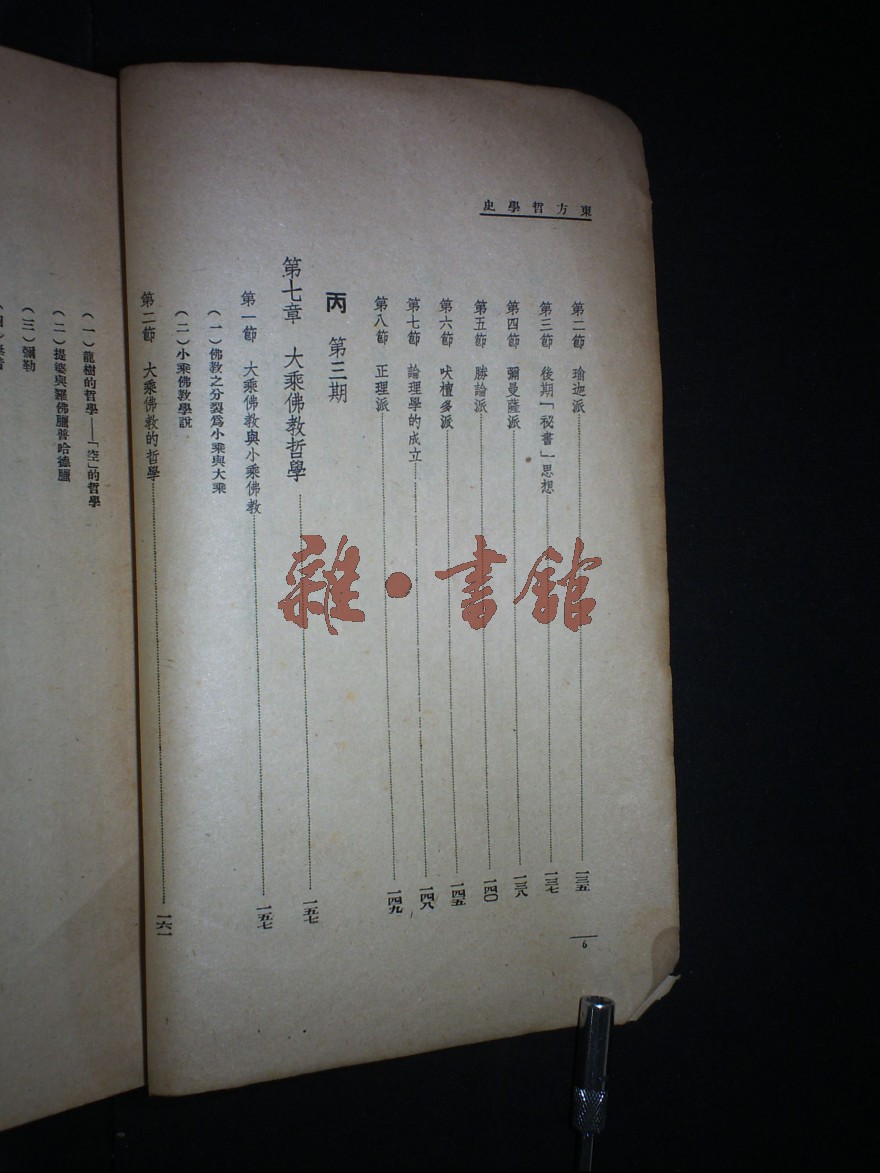 東方哲學史
第二節 瑜迦派 一三五
第三節 後期「祕書」思想 一三七
第四節 彌曼薩派 一三八
第五節 勝論派 一四〇
第六節 吠檀多派 一四五
第七節 論理學的成立 一四八
第八節 正理派 一四九
丙 第三期
第七章 大乘佛教哲學 一五七
第一節 大乘佛教與小乘佛教 一五七
(一)佛教之分裂為小乘與大乘
(二)小乘佛教學說
第二節 大乘佛教的哲學 一六一
6
(一)龍樹的哲學——「空」的哲學
(二)提婆與羅佛臘普哈德臘
(三)彌勒
雜·書館